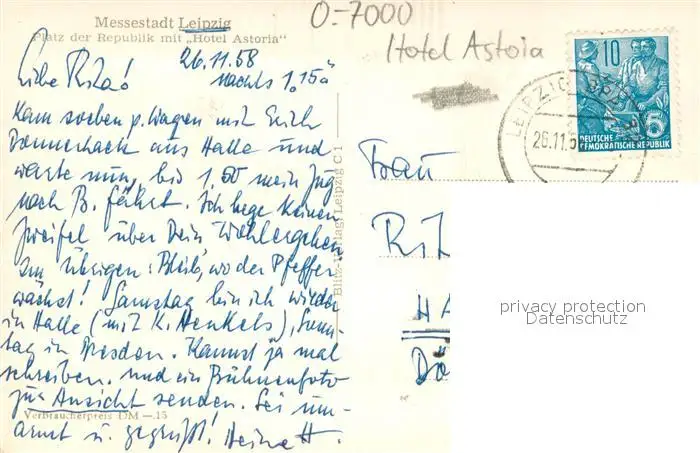 Messestadt Leipzig
Platz der Republik mit „Hotel Astoria"
26.11.58
nachts 1,15ᵃ
Liebe Rita!
Kam soeben p. Wagen mit Erich
aus Halle und
warte nun, bis 1.50 mein Zug
nach B. fährt. Ich hege keinen
Zweifel über Dein Wohlergehen.
Im übrigen: Bleib, wo der Pfeffer
wächst! Samstag bin ich wieder
in Halle (mit K. Henkels), Sonn-
tag in Dresden. Kannst ja mal
schreiben und ein Bühnenfoto
zur Ansicht senden. Sei um-
armt u. gegrüßt! Heinz H.
Verbraucherpreis DM —.15
Blitz-Verlag, Leipzig C 1
O-7000
Hotel Astoria
LEIPZIG
26.11.5
10
5
DEUTSCHE
DEMOKRATISCHE REPUBLIK
Frau
Rit
HA
privacy protection
Datenschutz